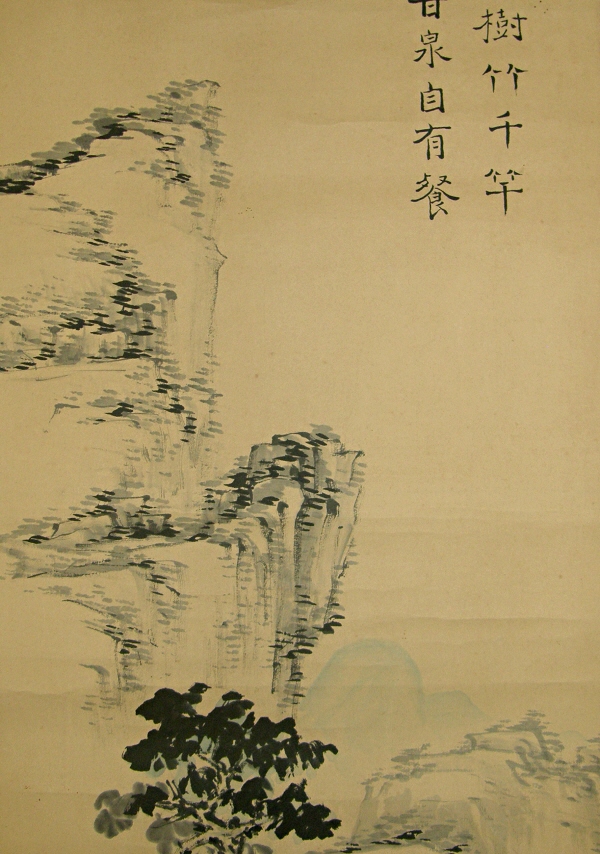 樹竹千竿
甘泉自有餐